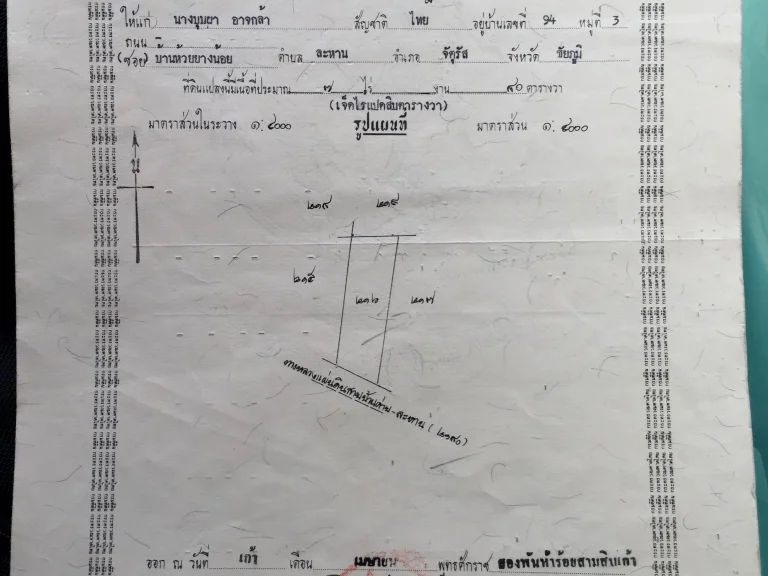 ให้แก่ นางบุบผา อาจกล้า สัญชาติ ไทย อยู่บ้านเลขที่ 94 หมู่ที่ 3
ถนน
(ซอย) บ้านห้วยยางน้อย ตำบล ละหาน อำเภอ จัตุรัส จังหวัด ชัยภูมิ
ที่ดินแปลงนี้มีเนื้อที่ประมาณ ๗ ไร่ งาน ๘๐ ตารางวา
(เจ็ดไร่แปดสิบตารางวา)
มาตราส่วนในระวาง ๑:๔๐๐๐ รูปแผนที่ มาตราส่วน ๑:๔๐๐๐
น
๒๑๕
๒๑๖ ๒๑๗
ออก ณ วันที่ เก้า เดือน เมษายน พุทธศักราช สองพันห้าร้อยสามสิบเก้า